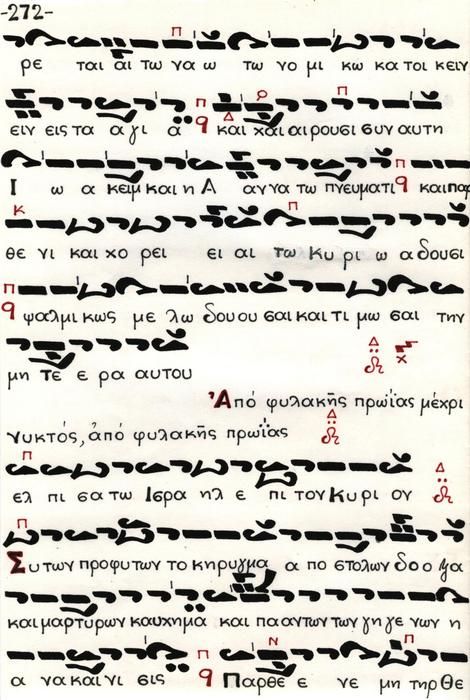 -272-
ρε ται αι τω να ω τω νο μι κω κα τοι κειν
ειν εις τα α γι α και χαι αι ρουσι συν αυτη
Ι ω α κειμ και η Α αν να τω πνευματι και παρ
θε νι και χο ρει ει αι τω κυ ρι ω α δουσι
ψαλμι κως με λω δου ου σαι και τι μω σαι την
μη τε ε ρα αυτου
Ἀπό φυλακῆς πρωΐας μέχρι
νυκτός, ἀπό φυλακῆς πρωΐας
ελ πι σα τω Ισρα ηλ ε πι τον Κυρι ον
Συ των προφυτων το κηρυγμα α πο στολων δο ο ξα
και μαρτυρων καυχημα και πα αντων των γη γε νων η
α να και νι σις Παρθε ε νε μη τηρ Θε